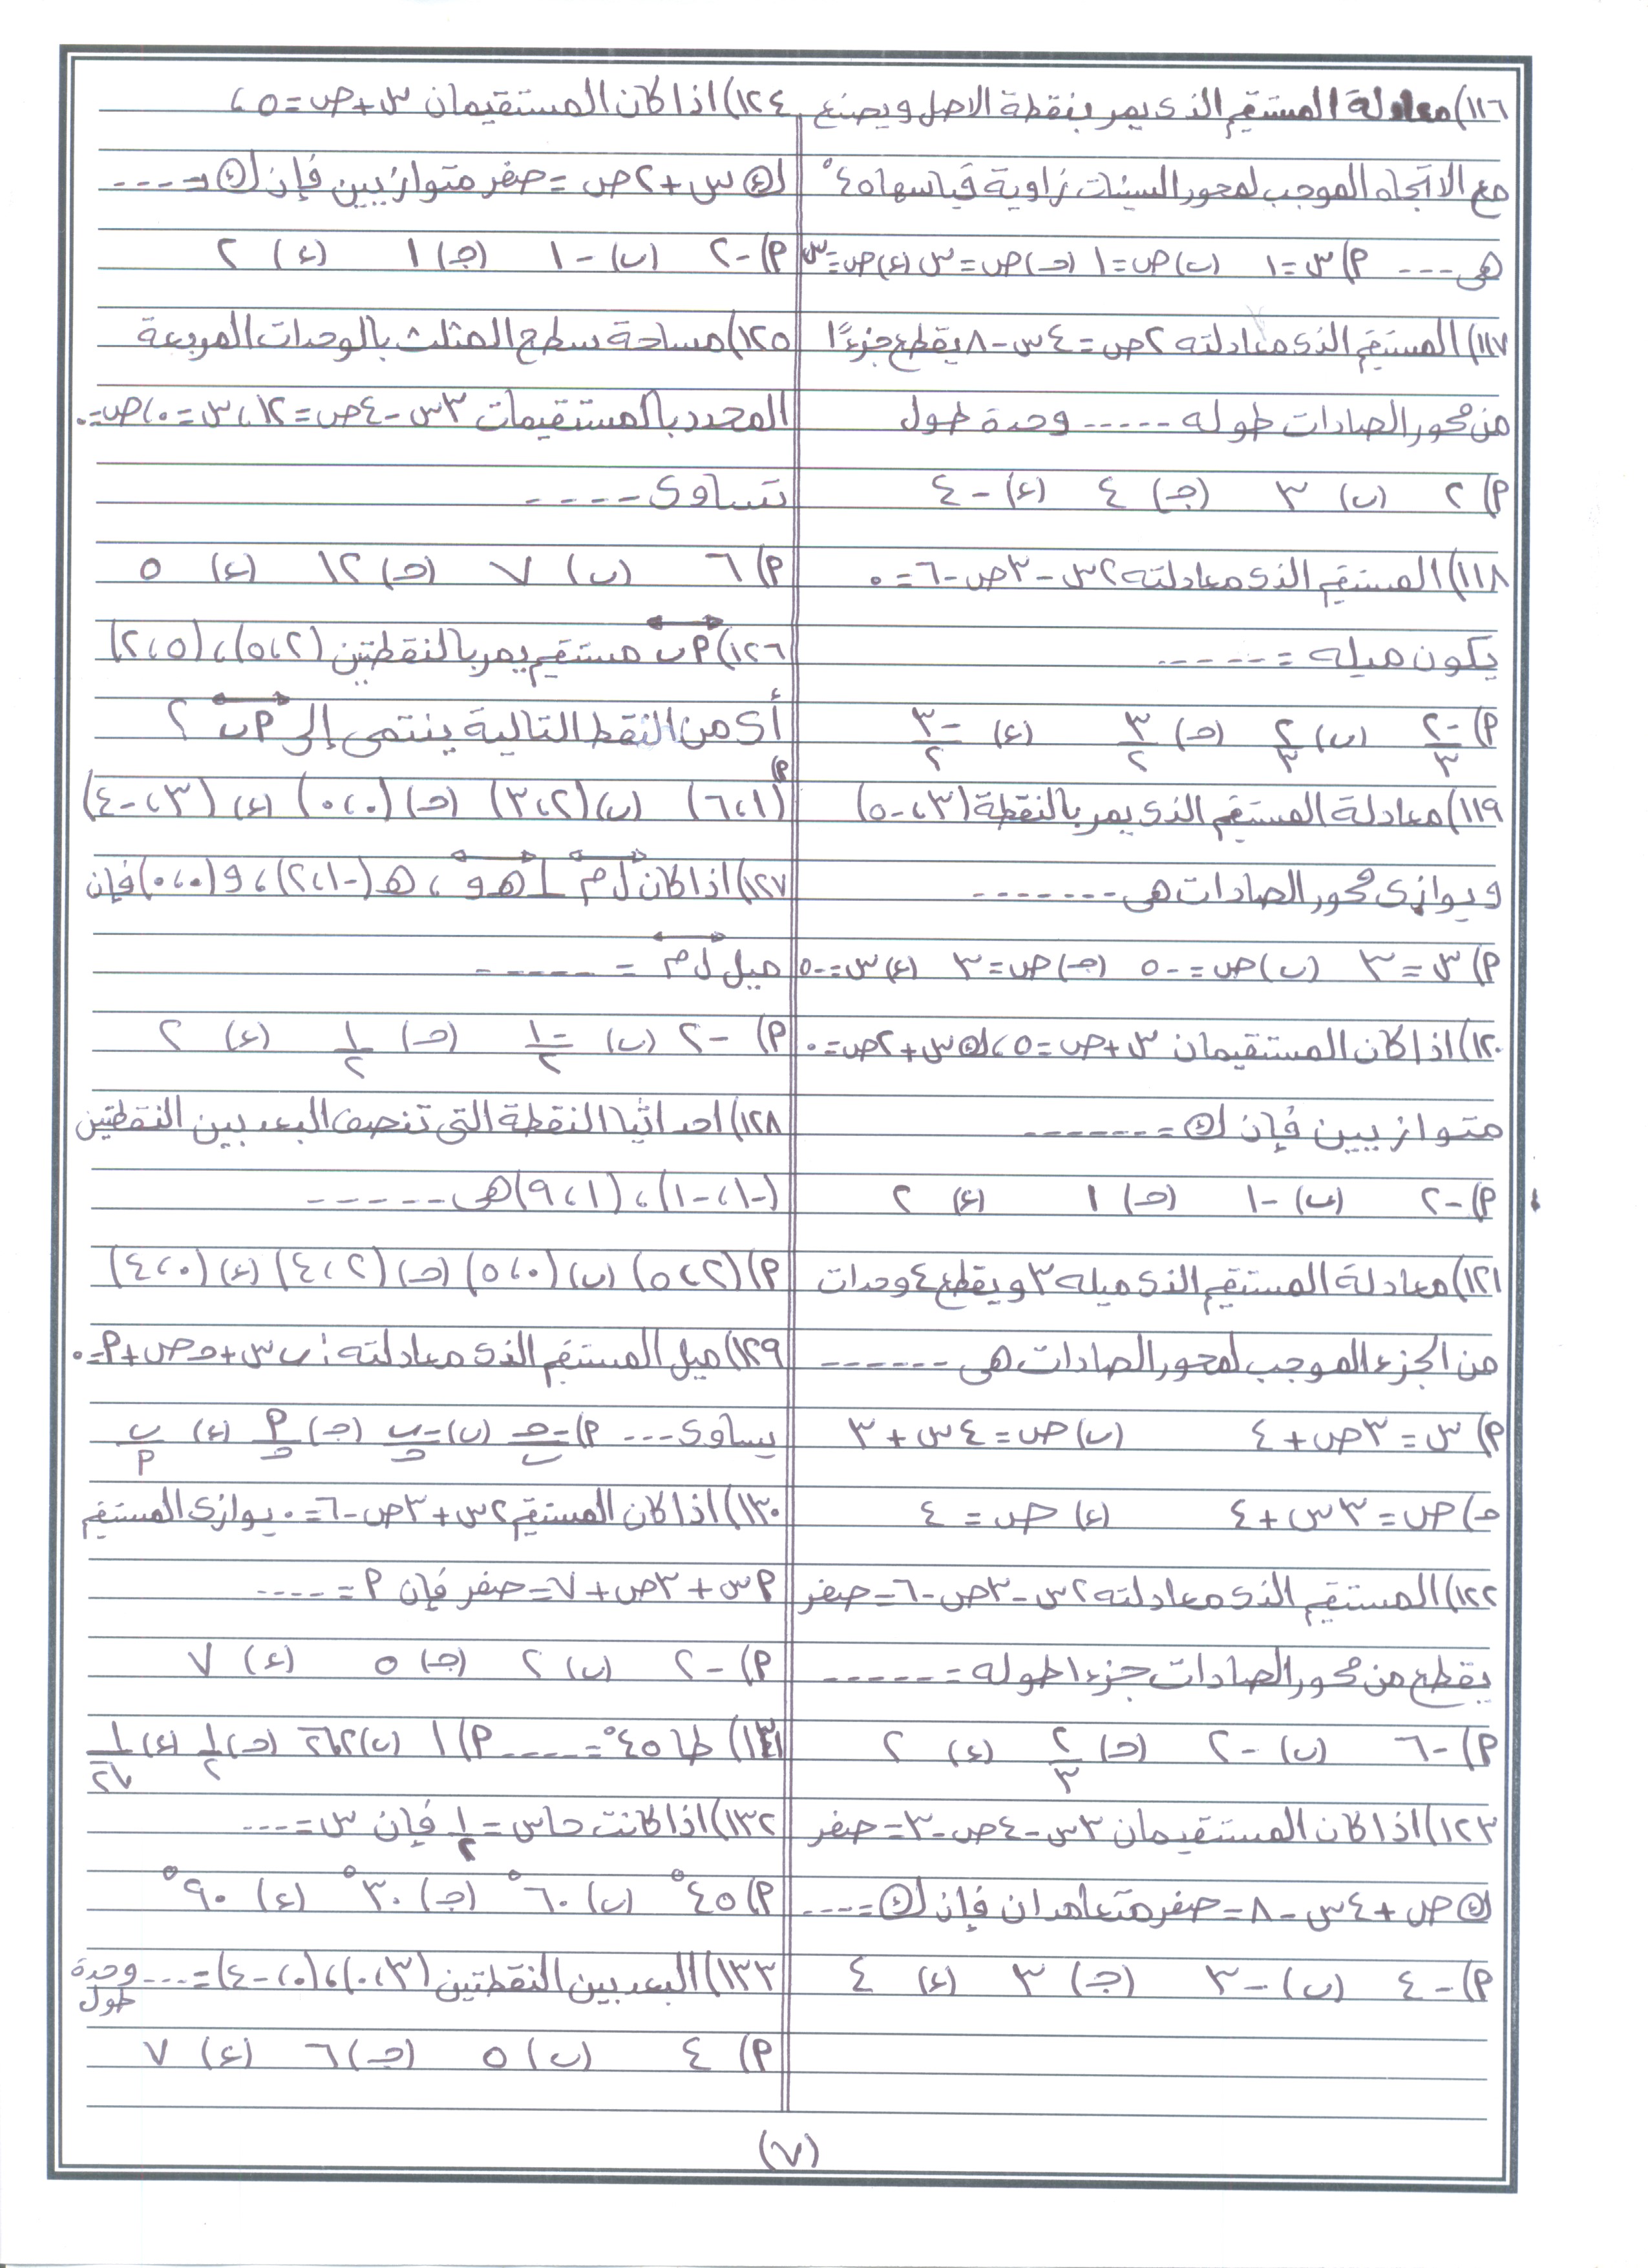 ١١٦) معادلة المستقيم الذى يمر بنقطة الاصل ويصنع
مع الاتجاه الموجب لمحور السينات زاوية قياسها ٤٥°
هى --- أ) س = ١ (ب) ص = ١ (حـ) ص = س (ء) ص = -س
١١٧) المستقيم الذى معادلته ٢ص = ٤س - ٨ يقطع جزءًا
من محور الصادات طوله ----- وحدة طول
أ) ٢ (ب) ٣ (جـ) ٤ (ء) - ٤
١١٨) المستقيم الذى معادلته ٢س - ٣ص - ٦ = ٠
يكون ميله = -----
أ) -٢/٣ (ب) ٢/٣ (حـ) ٣/٢ (ء) -٣/٢
١١٩) معادلة المستقيم الذى يمر بالنقطة (٣، -٥)
ويوازى محور الصادات هى -------
أ) س = ٣ (ب) ص = -٥ (جـ) ص = ٣ (ء) س = -٥
١٢٠) اذا كان المستقيمان س + ص = ٥، ك س + ٢ص = ٠
متوازيين فإن ك = -------
أ) -٢ (ب) -١ (حـ) ١ (ء) ٢
١٢١) معادلة المستقيم الذى ميله ٣ ويقطع ٤ وحدات
من الجزء الموجب لمحور الصادات هى -------
أ) س = ٣ص + ٤ (ب) ص = ٤س + ٣
حـ) ص = ٣س + ٤ (ء) ص = ٤
١٢٢) المستقيم الذى معادلته ٢س - ٣ص - ٦ = صفر
يقطع من محور الصادات جزءا طوله = -----
أ) -٦ (ب) -٢ (حـ) ٢/٣ (ء) ٢
١٢٣) اذا كان المستقيمان ٣س - ٤ص - ٣ = صفر
ك ص + ٤س - ٨ = صفر متعامدان فإن ك = ----
أ) - ٤ (ب) - ٣ (جـ) ٣ (ء) ٤
١٢٤) اذا كان المستقيمان س + ص = ٥،
ك س + ٢ص = صفر متوازيين فإن ك = ----
أ) -٢ (ب) -١ (جـ) ١ (ء) ٢
١٢٥) مساحة سطح المثلث بالوحدات المربعة
المحدد بالمستقيمات ٣س - ٤ص = ١٢، س = ٠، ص = ٠
تساوى ----
أ) ٦ (ب) ٧ (حـ) ١٢ (ء) ٥
١٢٦) أب مستقيم يمر بالنقطتين (٥،٢)، (٢،٥)
أى من النقط التالية ينتمى إلى أب ؟
أ) (٦،١) (ب) (٣،٢) (حـ) (٠،٠) (ء) (٣، -٤)
١٢٧) اذا كان ل م ⊥ هـ و، هـ (-٢،١)، و (٠،٠) فإن
ميل ل م = -----
أ) -٢ (ب) -١/٢ (حـ) ١/٢ (ء) ٢
١٢٨) احداثيا النقطة التى تنصف البعد بين النقطتين
(-١، -١)، (٩،١) هى -----
أ) (٥،٢) (ب) (٥،٠) (حـ) (٤،٢) (ء) (٤،٠)
١٢٩) ميل المستقيم الذى معادلته : ب س + حـ ص + أ = ٠
يساوى --- أ) -حـ/ب (ب) -ب/حـ (جـ) أ/حـ (ء) ب/أ
١٣٠) اذا كان المستقيم ٢س + ٣ص - ٦ = ٠ يوازى المستقيم
أس + ٣ص + ٧ = صفر فإن أ = ----
أ) -٢ (ب) ٢ (جـ) ٥ (ء) ٧
١٣١) طا ٤٥° = ---- أ) ١ (ب) ٢√٢ (حـ) ١/٢ (ء) ١/√٢
١٣٢) اذا كانت حاس = ١/٢ فإن س = ---
أ) ٤٥° (ب) ٦٠° (جـ) ٣٠° (ء) ٩٠°
١٣٣) البعد بين النقطتين (٠،٣)، (٠، -٤) = --- وحدة طول
أ) ٤ (ب) ٥ (جـ) ٦ (ء) ٧
(٧)